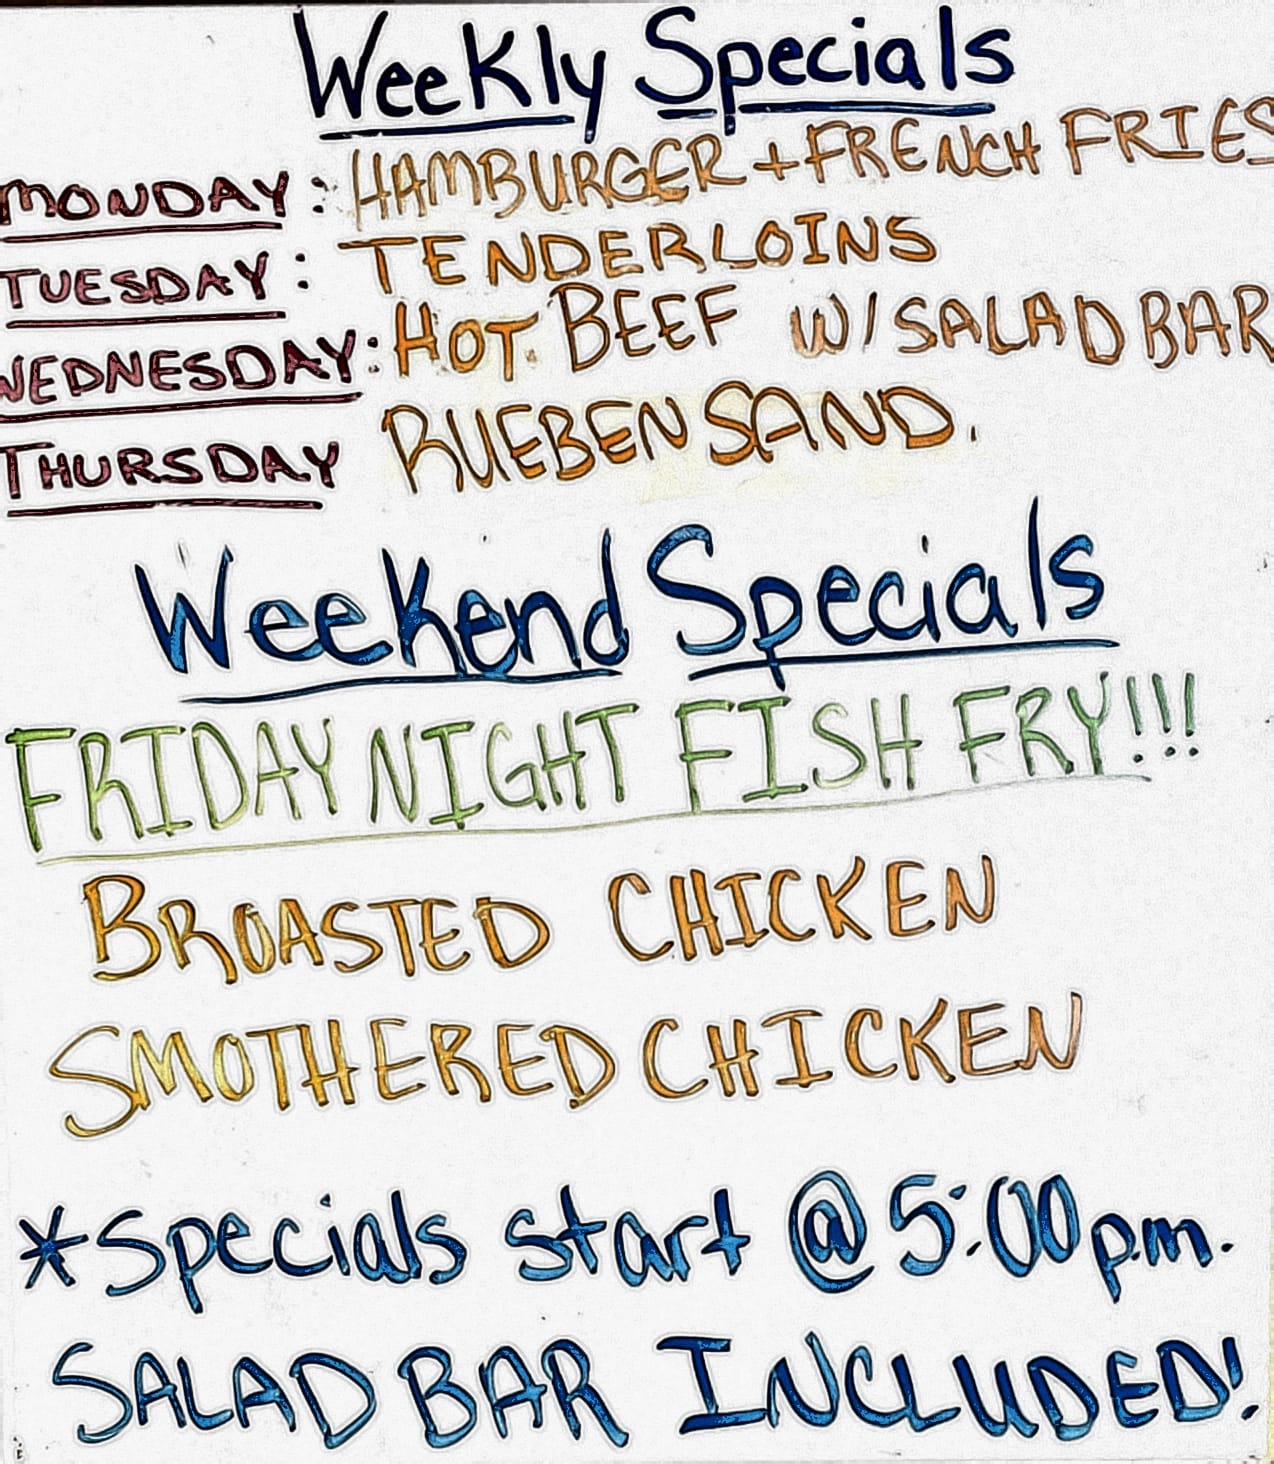 Weekly Specials
MONDAY: HAMBURGER + FRENCH FRIES
TUESDAY: TENDERLOINS
WEDNESDAY: HOT BEEF W/ SALAD BAR
THURSDAY RUEBEN SAND.
Weekend Specials
FRIDAY NIGHT FISH FRY!!!
BROASTED CHICKEN
SMOTHERED CHICKEN
*Specials start @ 5:00 p.m.
SALAD BAR INCLUDED!